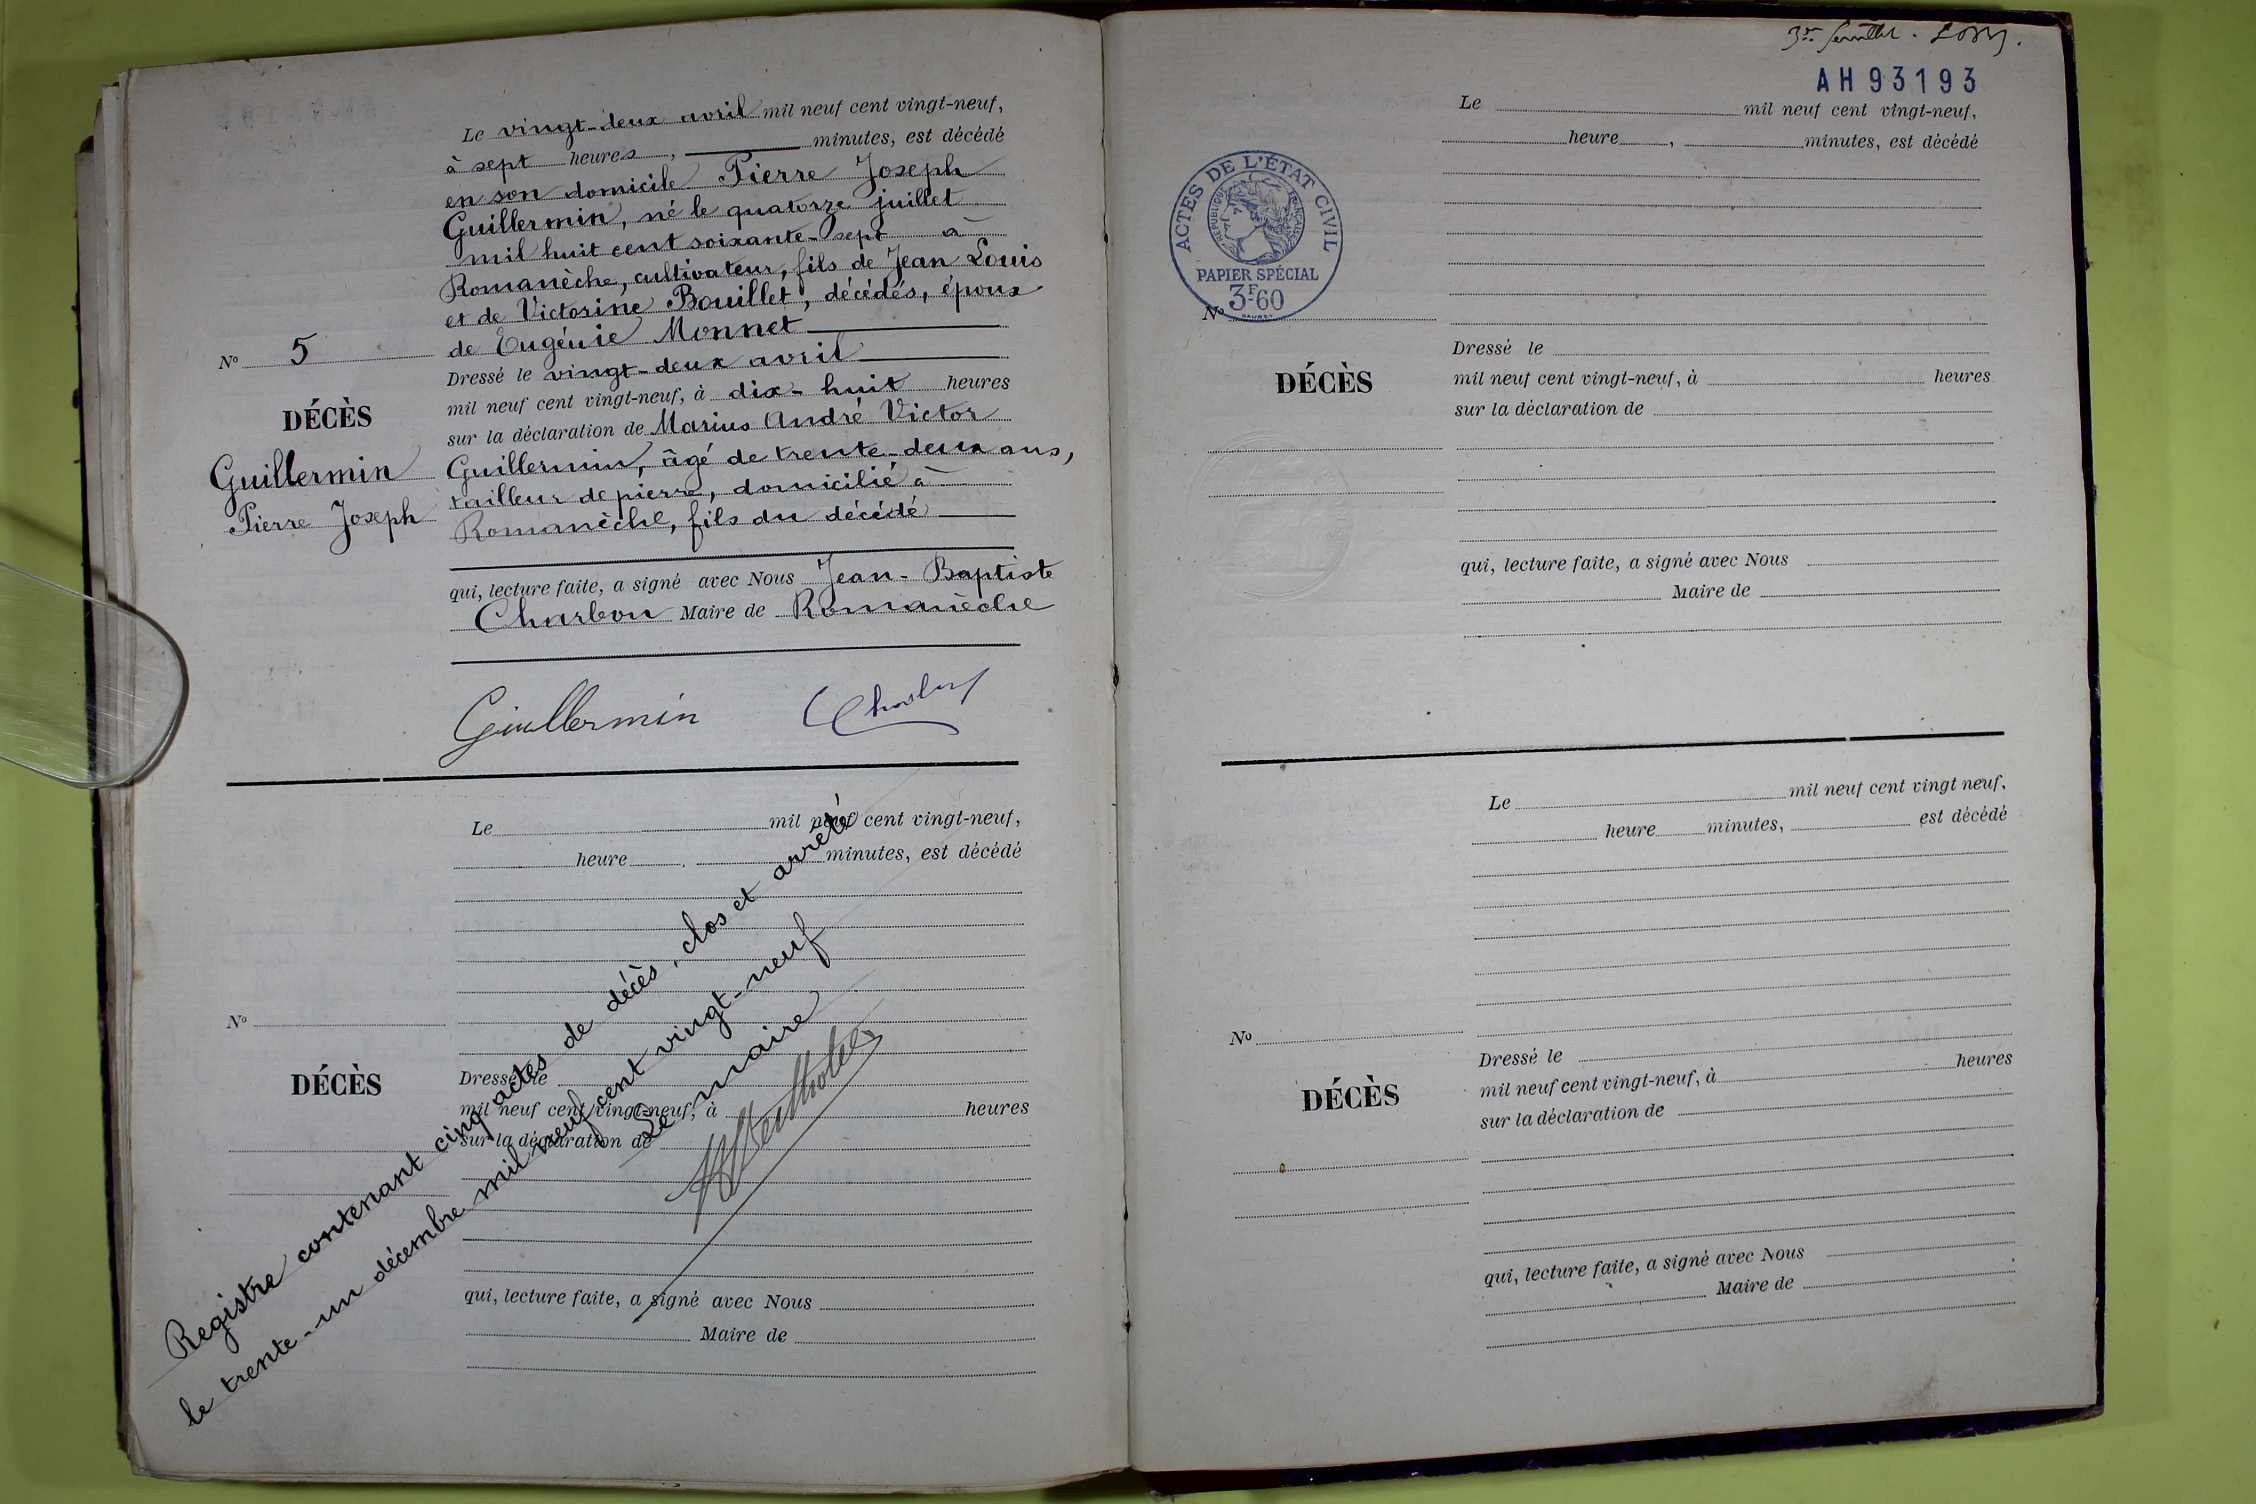 Le vingt-deux avril mil neuf cent vingt-neuf,
à sept heures, minutes, est décédé
en son domicile Pierre Joseph
Guillermin, né le quatorze juillet
mil huit cent soixante-sept à
Romanèche, cultivateur, fils de Jean Louis
et de Victorine Bouillet, décédés, époux
de Eugénie Monnet
Nº 5
DÉCÈS
Guillermin
Pierre Joseph
Dressé le vingt-deux avril
mil neuf cent vingt-neuf, à dix-huit heures
sur la déclaration de Marius André Victor
Guillermin, âgé de trente-deux ans,
tailleur de pierre, domicilié à
Romanèche, fils du décédé
qui, lecture faite, a signé avec Nous Jean-Baptiste
Charbon Maire de Romanèche
Guillermin
Le mil neuf cent vingt-neuf,
heure , minutes, est décédé
Nº
DÉCÈS
Dressé le
mil neuf cent vingt-neuf, à heures
sur la déclaration de
qui, lecture faite, a signé avec Nous
Maire de
Registre contenant cinq actes de décès, clos et arrêté
le trente-un décembre mil neuf cent vingt-neuf
Le maire
AH 93193
ACTES DE L'ÉTAT CIVIL
RÉPUBLIQUE FRANÇAISE
PAPIER SPÉCIAL
3F.60
Le mil neuf cent vingt-neuf,
heure , minutes, est décédé
Nº
DÉCÈS
Dressé le
mil neuf cent vingt-neuf, à heures
sur la déclaration de
qui, lecture faite, a signé avec Nous
Maire de
Le mil neuf cent vingt neuf,
heure minutes, est décédé
Nº
DÉCÈS
Dressé le
mil neuf cent vingt-neuf, à heures
sur la déclaration de
qui, lecture faite, a signé avec Nous
Maire de